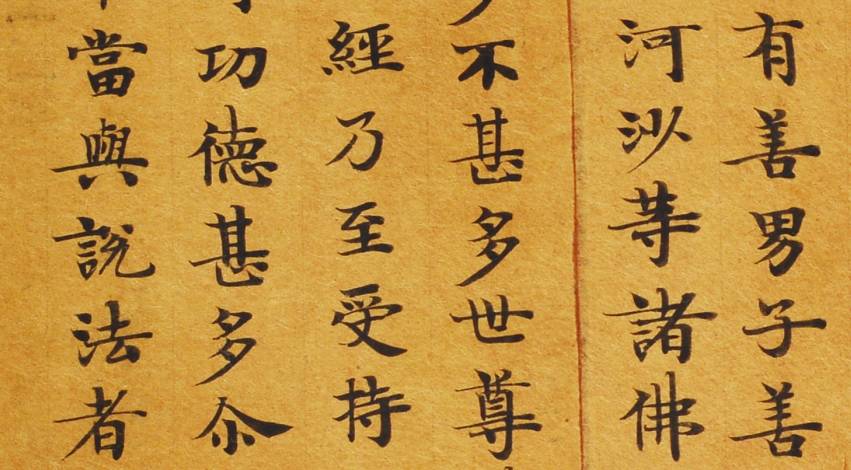 有善男子善
河沙等諸佛
不甚多世尊
經乃至受持
功德甚多尒
當與說法者